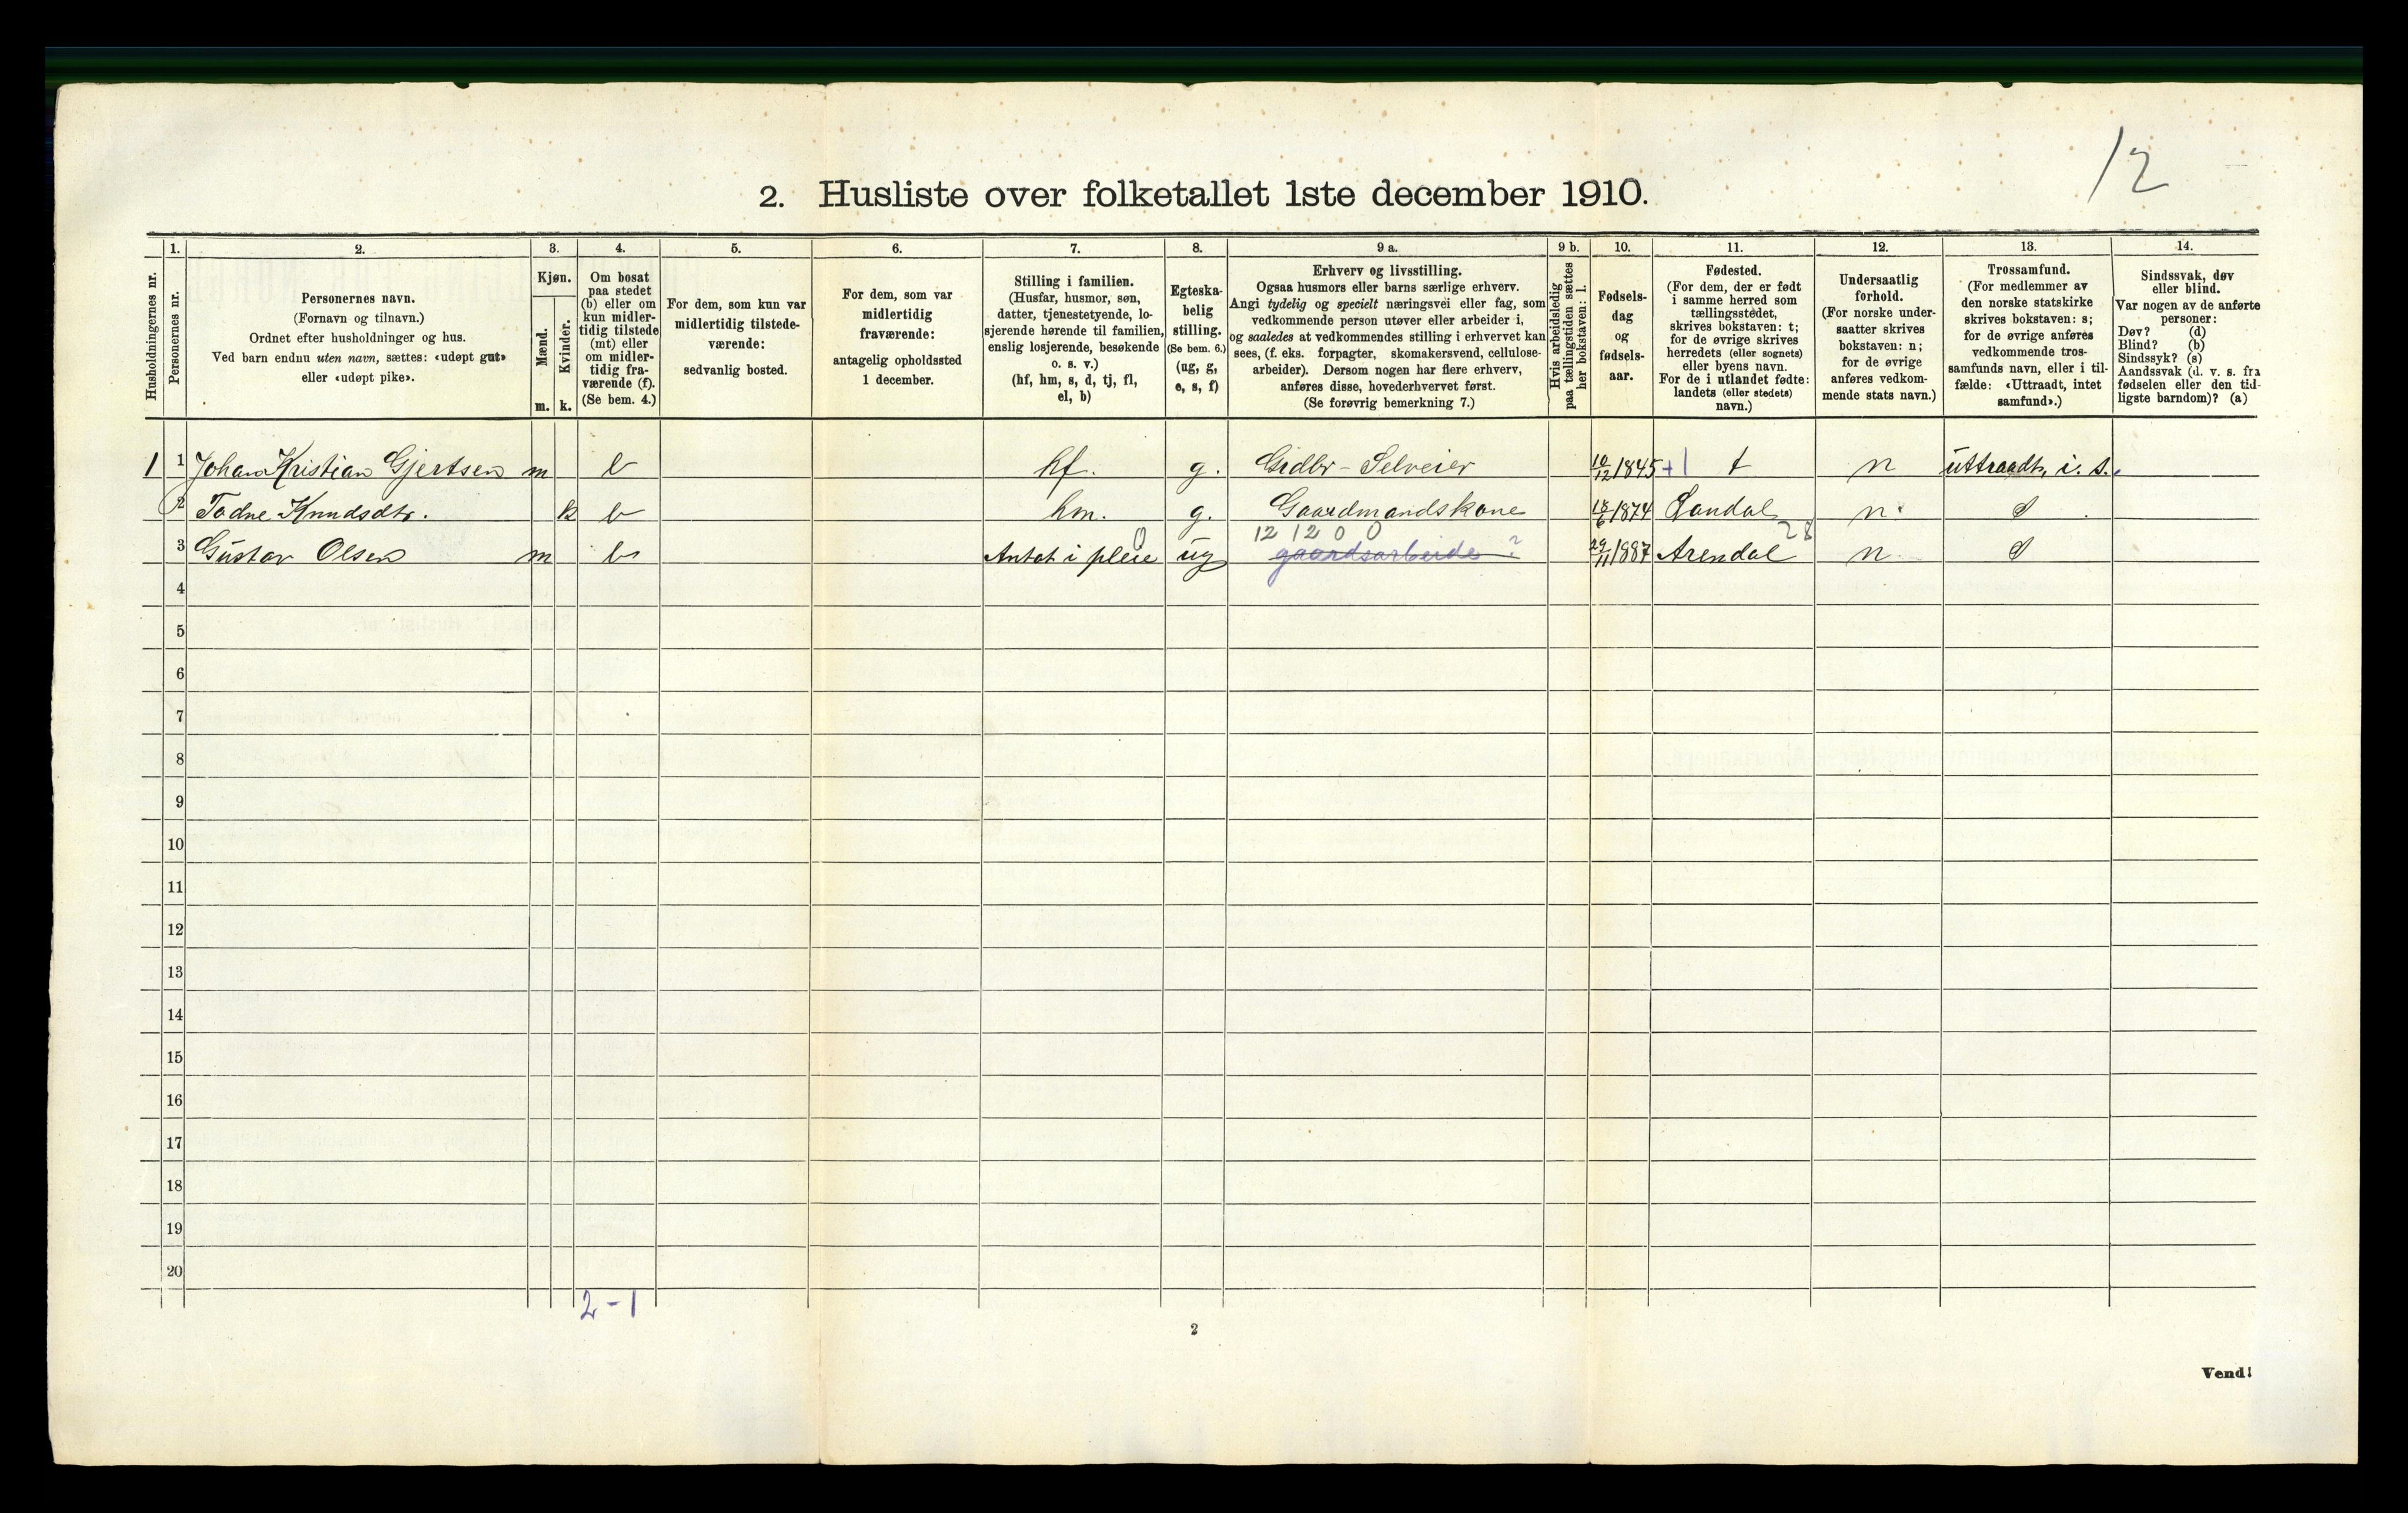 12
2. Husliste over folketallet 1ste december 1910.
Husholdningernes nr.
1.
Personernes nr.
2.
Personernes navn.
(Fornavn og tilnavn.)
Ordnet efter husholdninger og hus.
Ved barn endnu uten navn, sættes: «udøpt gut»
eller «udøpt pike».
3.
Kjøn.
Mænd.
m.
Kvinder.
k.
4.
Om bosat
paa stedet
(b) eller om
kun midler-
tidig tilstede
(mt) eller
om midler-
tidig fra-
værende (f).
(Se bem. 4.)
5.
For dem, som kun var
midlertidig tilstede-
værende:
sedvanlig bosted.
6.
For dem, som var
midlertidig
fraværende:
antagelig opholdssted
1 december.
7.
Stilling i familien.
(Husfar, husmor, søn,
datter, tjenestetyende, lo-
sjerende hørende til familien,
enslig losjerende, besøkende
o. s. v.)
(hf, hm, s, d, tj, fl,
el, b)
8.
Egteska-
belig
stilling.
(Se bem. 6.)
(ug, g,
e, s, f)
9 a.
Erhverv og livsstilling.
Ogsaa husmors eller barns særlige erhverv.
Angi tydelig og specielt næringsvei eller fag, som
vedkommende person utøver eller arbeider i,
og saaledes at vedkommendes stilling i erhvervet kan
sees, (f. eks. forpagter, skomakersvend, cellulose-
arbeider). Dersom nogen har flere erhverv,
anføres disse, hovederhvervet først.
(Se forøvrig bemerkning 7.)
9 b.
Hvis arbeidsledig
paa tællingstiden sættes
her bokstaven: l.
10.
Fødsels-
dag
og
fødsels-
aar.
11.
Fødested.
(For dem, der er født
i samme herred som
tællingsstedet,
skrives bokstaven: t;
for de øvrige skrives
herredets (eller sognets)
eller byens navn.
For de i utlandet fødte:
landets (eller stedets)
navn.)
12.
Undersaatlig
forhold.
(For norske under-
saatter skrives
bokstaven: n;
for de øvrige
anføres vedkom-
mende stats navn.)
13.
Trossamfund.
(For medlemmer av
den norske statskirke
skrives bokstaven: s;
for de øvrige anføres
vedkommende tros-
samfunds navn, eller i til-
fælde: «Uttraadt, intet
samfund».)
14.
Sindssvak, døv
eller blind.
Var nogen av de anførte
personer:
Døv? (d)
Blind? (b)
Sindssyk? (s)
Aandssvak (d. v. s. fra
fødselen eller den tid-
ligste barndom)? (a)
1 1 Johan Kristian Gjertsen m b hf. g. Grdbr - Selveier 10/12 1845 +1 t n uttraadt, i. s.
2 Tadne Knudsdtr. k b hm. g. Gaardmandskone 1874 n s
12 12 0 0
0 28
3 Gustav Olsen m b Antat i pleie ug gaardsarbeider ? 29/11 1887 Arendal n s
4
5
6
7
8
9
10
11
12
13
14
15
16
17
18
19
20
2 - 1
2
Vend!